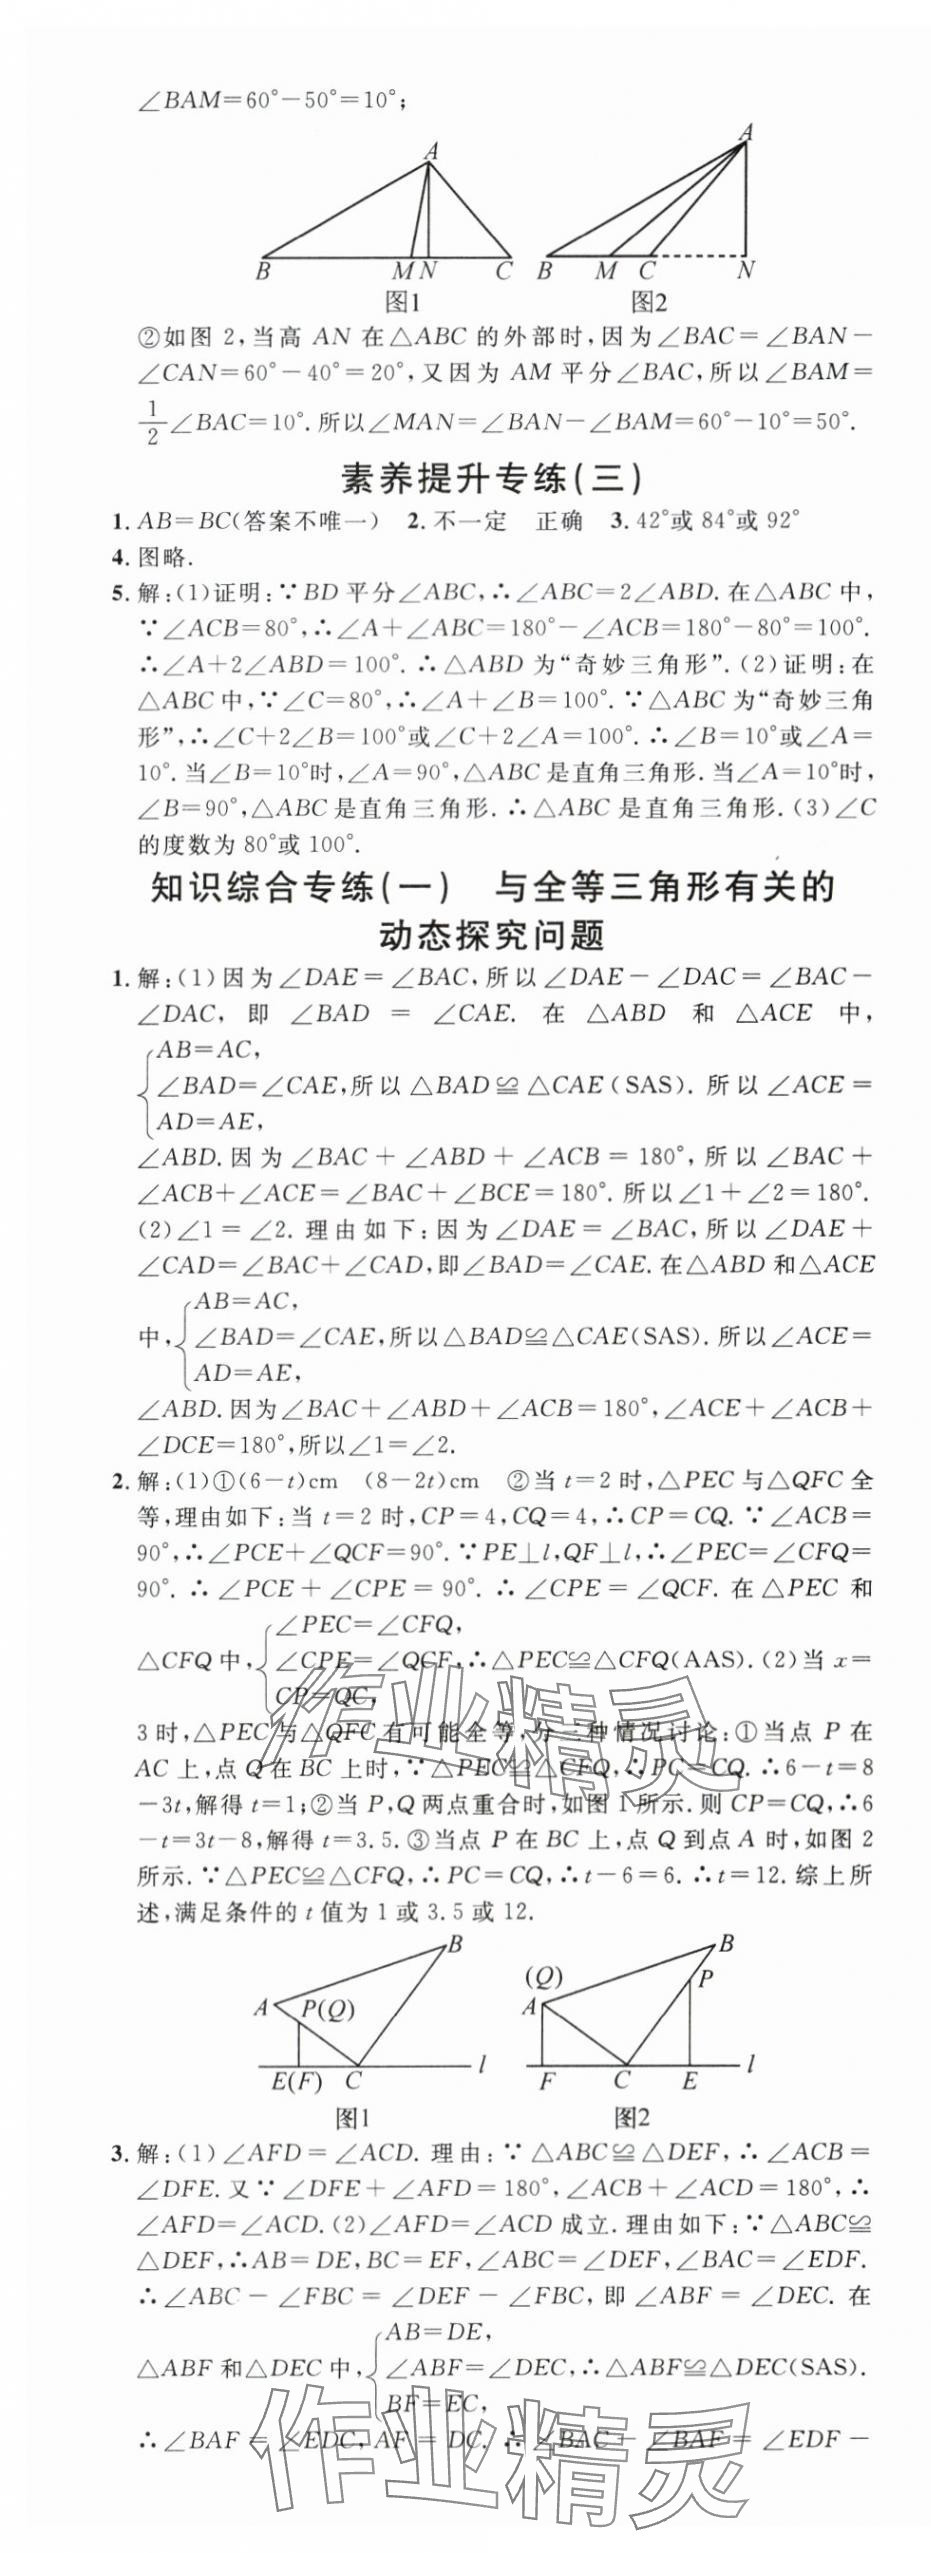 ∠BAM=60°-50°=10°;
A
B
M
N
C
图1
A
B
M
C
N
图2
②如图 2,当高 AN 在△ABC 的外部时,因为∠BAC=∠BAN-
∠CAN=60°-40°=20°,又因为 AM 平分∠BAC,所以∠BAM=
1/2∠BAC=10°.所以∠MAN=∠BAN-∠BAM=60°-10°=50°.
素养提升专练(三)
1. AB=BC(答案不唯一) 2. 不一定 正确 3. 42°或 84°或 92°
4. 图略.
5. 解:(1)证明:∵BD 平分∠ABC,∴∠ABC=2∠ABD.在△ABC 中,
∵∠ACB=80°,∴∠A+∠ABC=180°-∠ACB=180°-80°=100°.
∴∠A+2∠ABD=100°.∴△ABD 为“奇妙三角形”.(2)证明:在
△ABC 中,∵∠C=80°,∴∠A+∠B=100°.∵△ABC 为“奇妙三角
形”,∴∠C+2∠B=100°或∠C+2∠A=100°.∴∠B=10°或∠A=
10°.当∠B=10°时,∠A=90°,△ABC 是直角三角形.当∠A=10°时,
∠B=90°,△ABC 是直角三角形.∴△ABC 是直角三角形.(3)∠C
的度数为 80°或 100°.
知识综合专练(一) 与全等三角形有关的
动态探究问题
1. 解:(1)因为∠DAE=∠BAC,所以∠DAE-∠DAC=∠BAC-
∠DAC,即 ∠BAD = ∠CAE. 在 △ABD 和 △ACE 中,
AB=AC,
∠BAD=∠CAE,所以△BAD≌△CAE(SAS).所以∠ACE=
AD=AE,
∠ABD.因为∠BAC+∠ABD+∠ACB=180°,所以∠BAC+
∠ACB+∠ACE=∠BAC+∠BCE=180°.所以∠1+∠2=180°.
(2)∠1=∠2.理由如下:因为∠DAE=∠BAC,所以∠DAE+
∠CAD=∠BAC+∠CAD,即∠BAD=∠CAE.在△ABD和△ACE
AB=AC,
中,∠BAD=∠CAE,所以△BAD≌△CAE(SAS).所以∠ACE=
AD=AE,
∠ABD.因为∠BAC+∠ABD+∠ACB=180°,∠ACE+∠ACB+
∠DCE=180°,所以∠1=∠2.
2. 解:(1)①(6-t)cm (8-2t)cm ②当 t=2 时,△PEC 与△QFC 全
等,理由如下:当 t=2 时,CP=4,CQ=4,∴CP=CQ.∵∠ACB=
90°,∴∠PCE+∠QCF=90°.∵PE⊥l,QF⊥l,∴∠PEC=∠CFQ=
90°.∴∠PCE+∠CPE=90°.∴∠CPE=∠QCF.在△PEC 和
∠PEC=∠CFQ,
△CFQ 中,∠CPE=∠QCF,∴△PEC≌△CFQ(AAS).(2)当 x=
CP=QC,
3 时,△PEC 与△QFC 有可能全等,分三种情况讨论:①当点 P 在
AC 上,点 Q 在 BC 上时,∵△PEC≌△CFQ,∴PC=CQ.∴6-t=8
-3t,解得 t=1;②当 P,Q 两点重合时,如图 1 所示.则 CP=CQ,∴6
-t=3t-8,解得 t=3.5.③当点 P 在 BC 上,点 Q 到点 A 时,如图 2
所示.∵△PEC≌△CFQ,∴PC=CQ,∴t-6=6.∴t=12.综上所
述,满足条件的 t 值为 1 或 3.5 或 12.
B
A
P(Q)
E(F)
C
l
图1
(Q)
A
B
P
F
C
E
l
图2
3. 解:(1)∠AFD=∠ACD.理由:∵△ABC≌△DEF,∴∠ACB=
∠DFE.又∵∠DFE+∠AFD=180°,∠ACB+∠ACD=180°,∴
∠AFD=∠ACD.(2)∠AFD=∠ACD 成立.理由如下:∵△ABC≌
△DEF,∴AB=DE,BC=EF,∠ABC=∠DEF,∠BAC=∠EDF.
∴∠ABC-∠FBC=∠DEF-∠FBC,即∠ABF=∠DEC.在
AB=DE,
△ABF 和△DEC 中,∠ABF=∠DEC,∴△ABF≌△DEC(SAS).
BF=EC,
∴∠BAF=∠EDC,AF=DC.∴∠BAC-∠BAF=∠EDF-
作业精灵
作业精灵